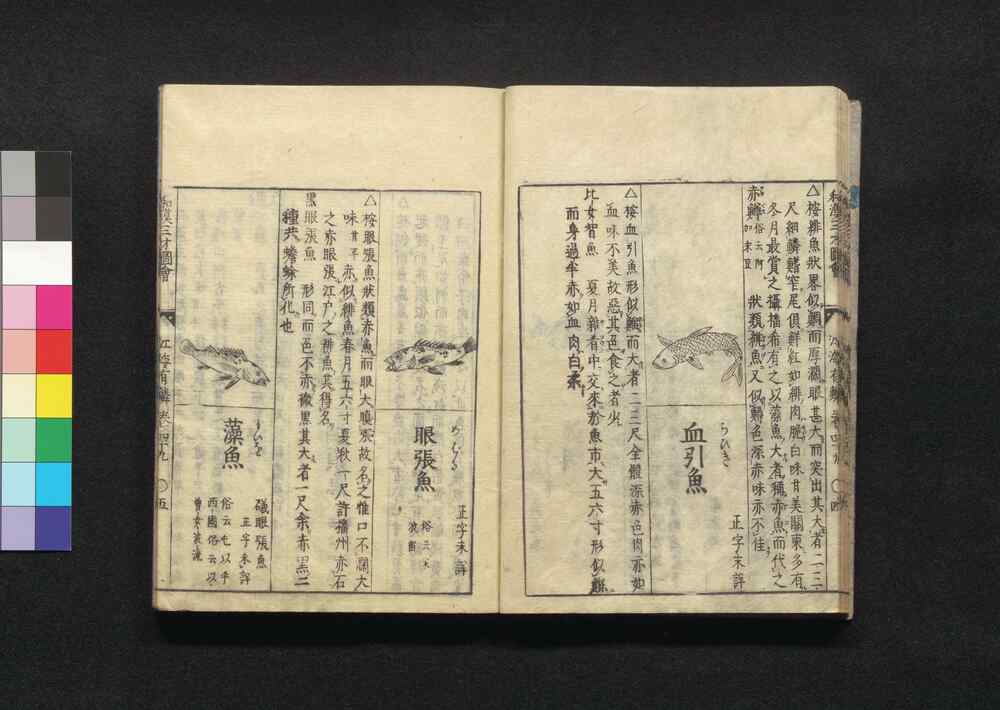 △按緋魚狀畧似鯛而厚濶眼甚大而突出其大者二三
尺細鱗鰭窄尾俱鮮紅如緋肉脆白味甘美關東多有
冬月最賞之攝播希有之以藻魚大者稱赤魚而代之
狀類緋魚又似鯛色深赤味亦不佳
血引魚
ちひき
正字未詳
△按血引魚形似鯛而大者二三尺全體深赤色肉亦如
血味不美故惡其色食之者少
比女智魚 夏月雜肴中交來於魚市大五六寸形似
而身過半赤如血肉白柔
和漢三才圖會
眼張魚
めばる
正字未詳
俗云
△按眼張魚狀類赤魚而眼大瞋張故名之惟口不濶大
味甘平亦似緋魚春月五六寸夏秋一尺許播州赤石
之赤眼張江戸之緋魚共得名
黒眼張魚 形同而色不赤微黒其大者一尺余赤黒二
種共蟾蜍所化也
藻魚
礒眼張魚
正字未詳
俗云毛以乎
西國俗云以